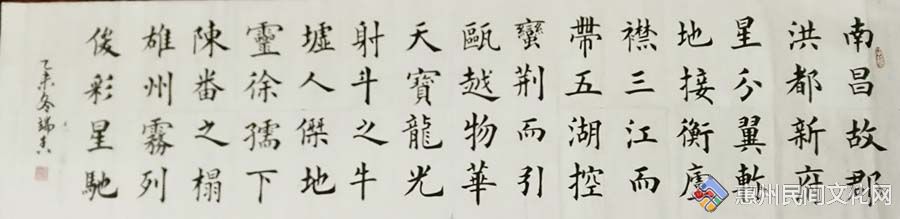 南昌故郡
洪都新府
星分翼軫
地接衡廬
襟三江而
帶五湖控
蠻荆而引
甌越物華
天寶龍光
射斗之牛
墟人傑地
靈徐孺下
陳番之榻
雄州霧列
俊彩星馳
乙未冬瑞
惠州民间文化网